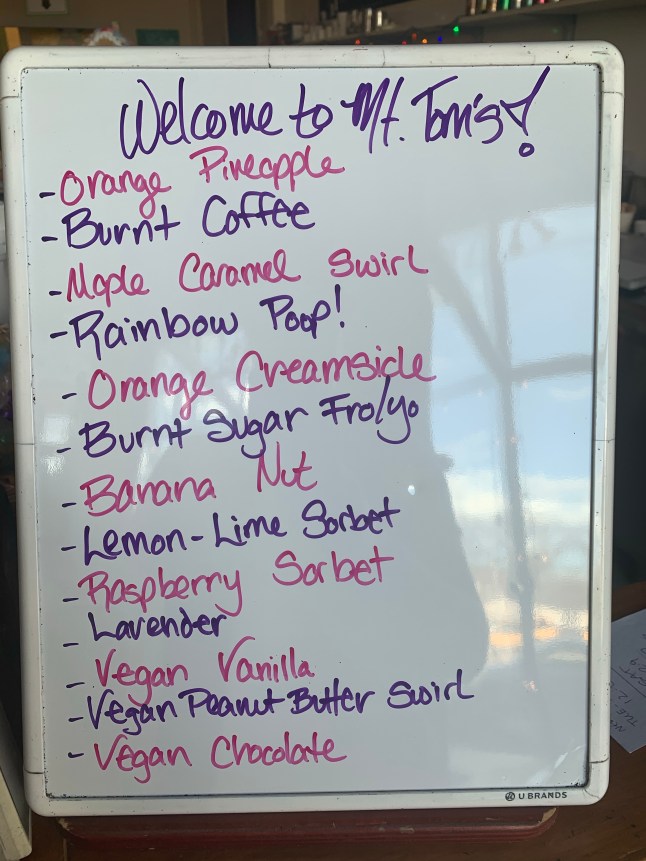 Welcome to Mt. Tom's!
-Orange Pineapple
-Burnt Coffee
-Maple Caramel Swirl
-Rainbow Poop!
-Orange Creamsicle
-Burnt Sugar Fro/yo
-Banana Nut
-Lemon-Lime Sorbet
-Raspberry Sorbet
-Lavender
-Vegan Vanilla
-Vegan Peanut Butter Swirl
-Vegan Chocolate
U BRANDS